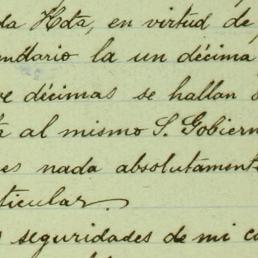 da Hda, en virtud de
la un décima
décimas se hallan
al mismo S. Gobiern
es nada absolutament
ticular.
seguridades de mi co